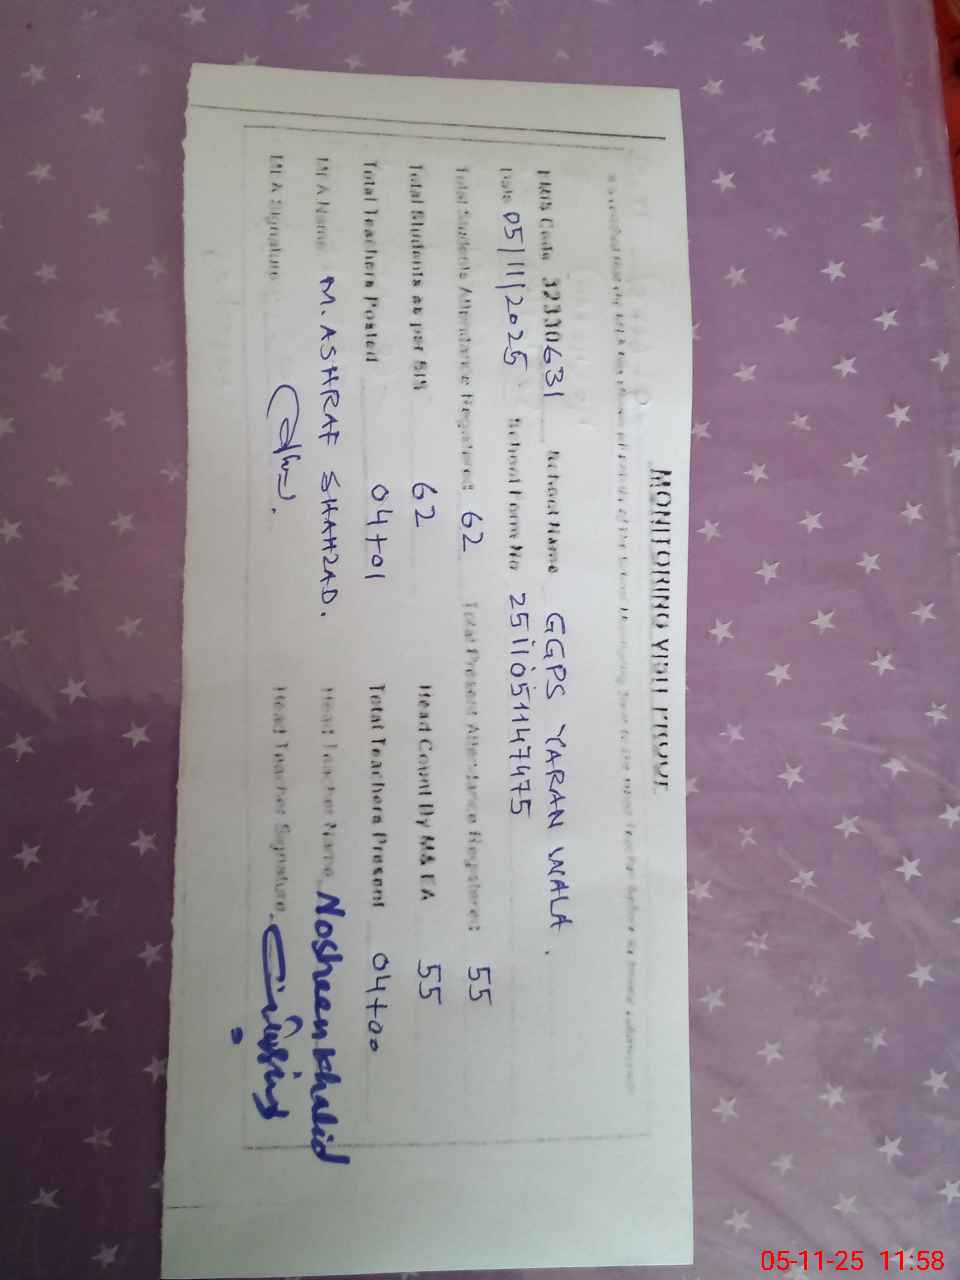 MONITORING VISIT PROOF
EMIS Code 32330631 School Name GGPS YARAN WALA .
Date 05/11/2025 School Form No 251105114747​5
Total Students Attendance Registered 62 Total Present Attendance Registered 55
Total Students as per SIS 62 Head Count By M& EA 55
Total Teachers Posted 04+01 Total Teachers Present 04+00
MEA Name M. ASHRAF SHAHZAD. Head Teacher Name Nosheen Khalid
MEA Signature Head Teacher Signature
05-11-25 11:58